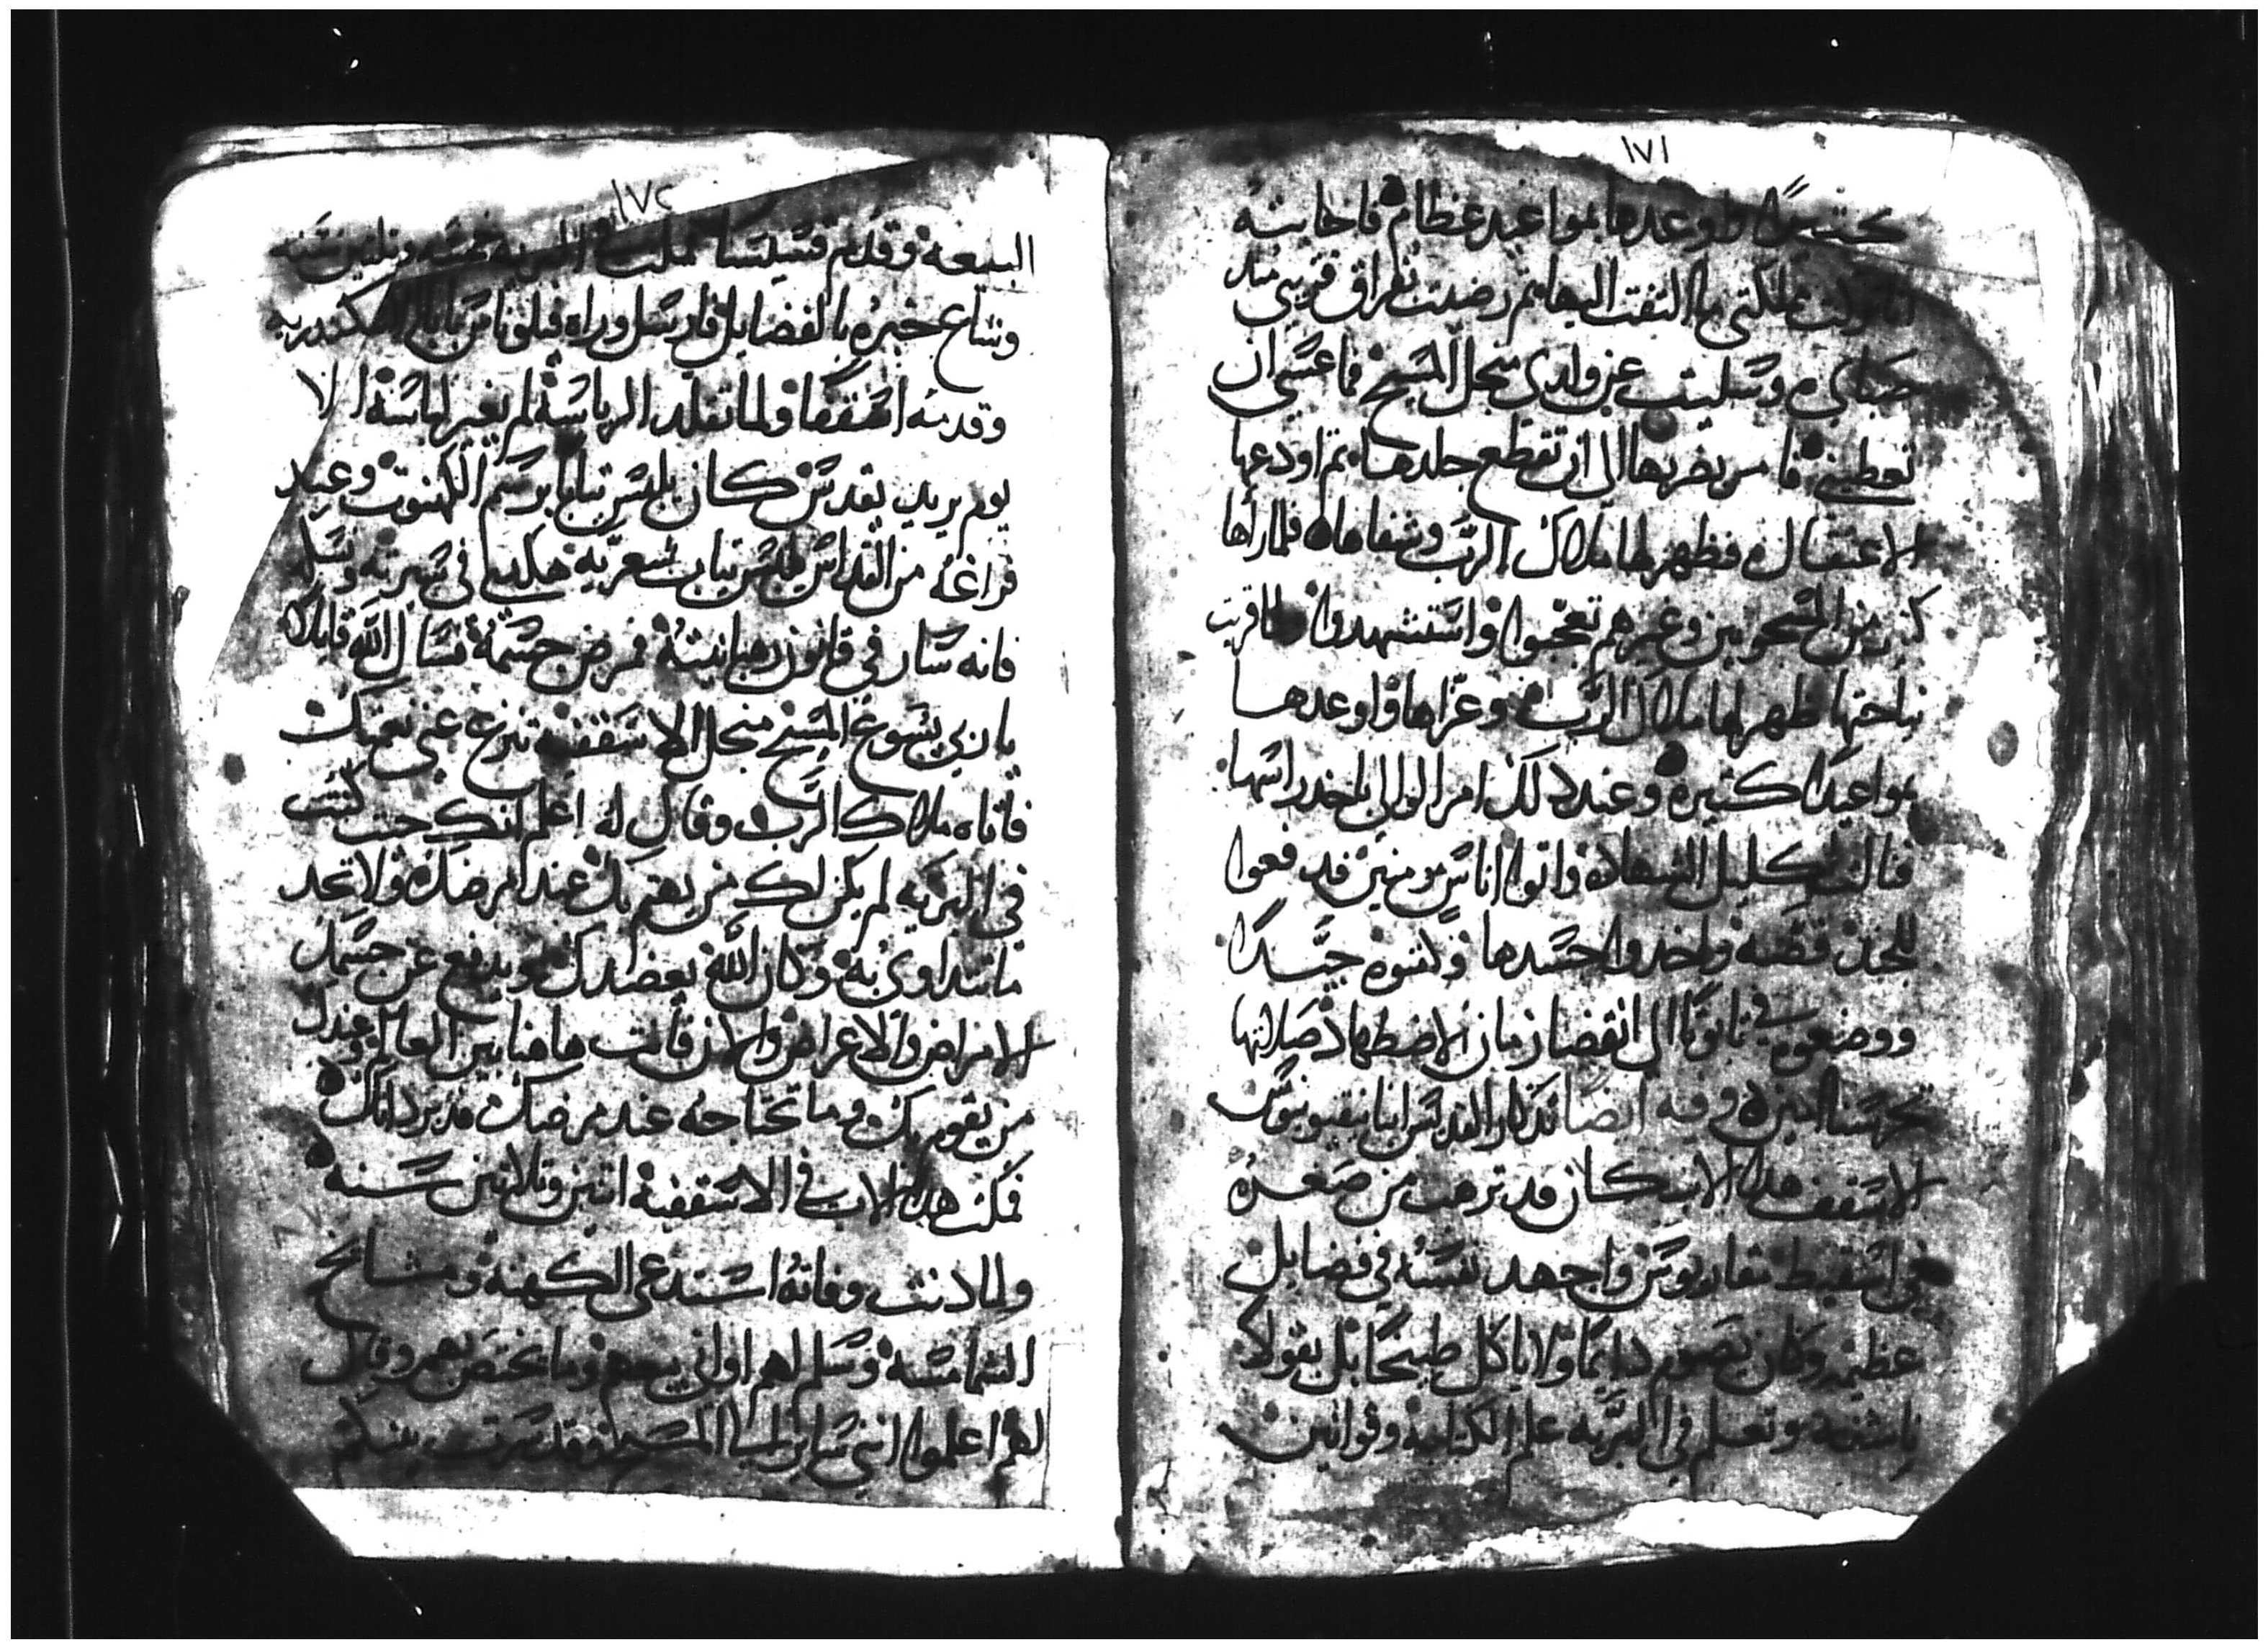 ١٧١
كتيرًا ووعدها بمواعيد عظام فاجابته
انا تركت مملكتي ما التفت اليها ثم رضيت بفراق قريبي منذ
صباي وسليت عن والدي منجل المسيح فما عسى ان
تعطيني فامر بضربها الى ان تقطع جلدها ثم اودعها
الاعتقال فظهر لها ملاك الرب وشفاها فلما رآها
كثير من المسجونين وغيرهم تعجبوا واستشهدوا ولما قربت
نياحتها ظهر لها ملاك الرب وعزاها واوعدها
بمواعيدًا كثيرة وعند ذلك امر الوالي باخذ راسها
فنالت اكليل الشهادة واتوا اناس مومنين فدفعوا
للجند فضة واخدوا جسدها وكفنوه جيدًا
ووضعوه في تابوتًا الى انقضا زمان الاضطهاد صلاتها
تحرسنا امين وفيه ايضا تذكار القديس انبا
الاسقف هذا الاب كان قد ترهب من صغره
في اسقيط مقاريوس واجهد نفسه في فضايل
عظيمه وكان يصوم دايمًا ولا ياكل طبيخًا بل بقولًا
ناشفة وتعلم في البريه علم الكتابة وقوانين
١٧٢
البيعة وقدم قسيسا فمكث في البريه خمسه وتلتين سنه
وشاع خبره بالفضايل فارسل وراه فيلوتاس بابا الاسكندريه
وقدمه اسقفًا ولما تقلد الرياسة لم يغير لباسه الا
يوم يريد يقدس كان يلبس تيابًا برسم الكهنوت وعند
فراغه من القداس يلبس تياب شعريه هكدا في سيرته ونسكه
فانه سار في قانون رهبانيته فمرض جسمه فسال الله قايلا
يا ربي يسوع المسيح منجل الاسقفيه تنزع عني نعمتك
فاتاه ملاك الرب وقال له اعلم انك حيت كنت
في البريه لم يكن لك من يهتم بك عند مرضك ولا تجد
ما تتداوى به وكان الله يعضدك ويدفع عن جسمك
الامراض والاعراض والان فانت هاهنا بين العالم وعندك
من يقوم بك وما تحتاجه عند مرضك
فمكث هذا الاب في الاسقفية اتنين وتلاتين سنه
ولما دنت وفاته استدعى الكهنة ومشايخ
الشمامسه وسلم لهم اواني بيعهم وما يختص بهم وقال
لهم اعلموا انني ساير الى المسيح وقد سرت بينكم